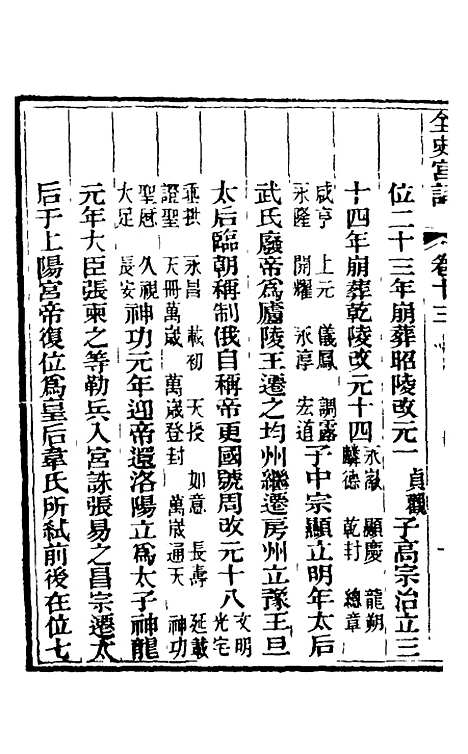 全史宮詞 卷十三
位二十三年崩葬昭陵改元一貞觀子高宗治立三
十四年崩葬乾陵改元十四永徽 顯慶 龍朔 麟德 乾封 總章
咸亨 上元 儀鳳 調露 永隆 開耀 永淳 宏道子中宗顯立明年太后
武氏廢帝爲廬陵王遷之均州繼遷房州立豫王旦
太后臨朝稱制俄自稱帝更國號周改元十八文明 光宅
垂拱 永昌 載初 天授 如意 長壽 延載 證聖 天冊萬歲 萬歲登封 萬歲通天 神功
聖厯 久視 大足 長安神功元年迎帝還洛陽立爲太子神龍
元年大臣張柬之等勒兵入宮誅張易之昌宗遷太
后于上陽宮帝復位爲皇后韋氏所弑前後在位七